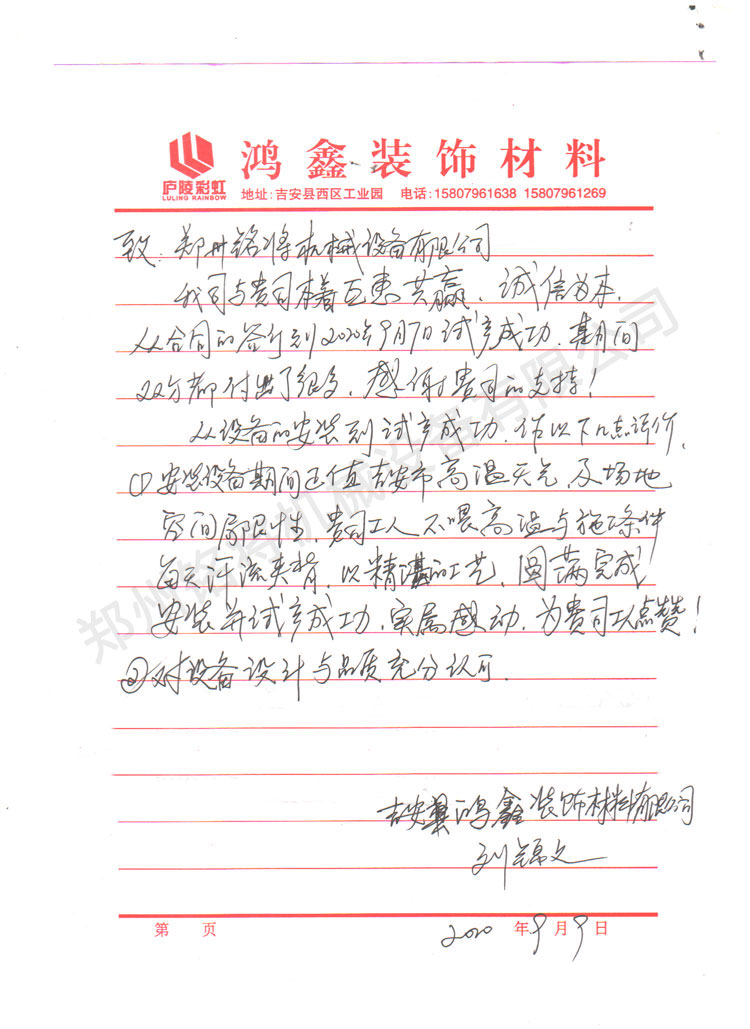 鸿鑫装饰材料
庐陵彩虹
LULING RAINBOW
地址:吉安县西区工业园 电话:15807961638 15807961269
致:郑州铭将机械设备有限公司
我司与贵司本着互惠共赢、诚信为本,
从合同的签订到2020年9月7日试产成功,期间
双方都付出了很多,感谢贵司的支持!
从设备的安装到试产成功,作以下几点评价,
①安装设备期间正值吉安市高温天气及场地
空间局限性,贵司工人不畏高温与施条件
每天汗流夹背,以精湛的工艺,圆满完成
安装并试产成功,实属感动,为贵司工人点赞!
②对设备设计与品质充分认可.
吉安县鸿鑫装饰材料有限公司
刘锦文
第 页 2020 年 9 月 9 日
郑州铭将机械设备有限公司